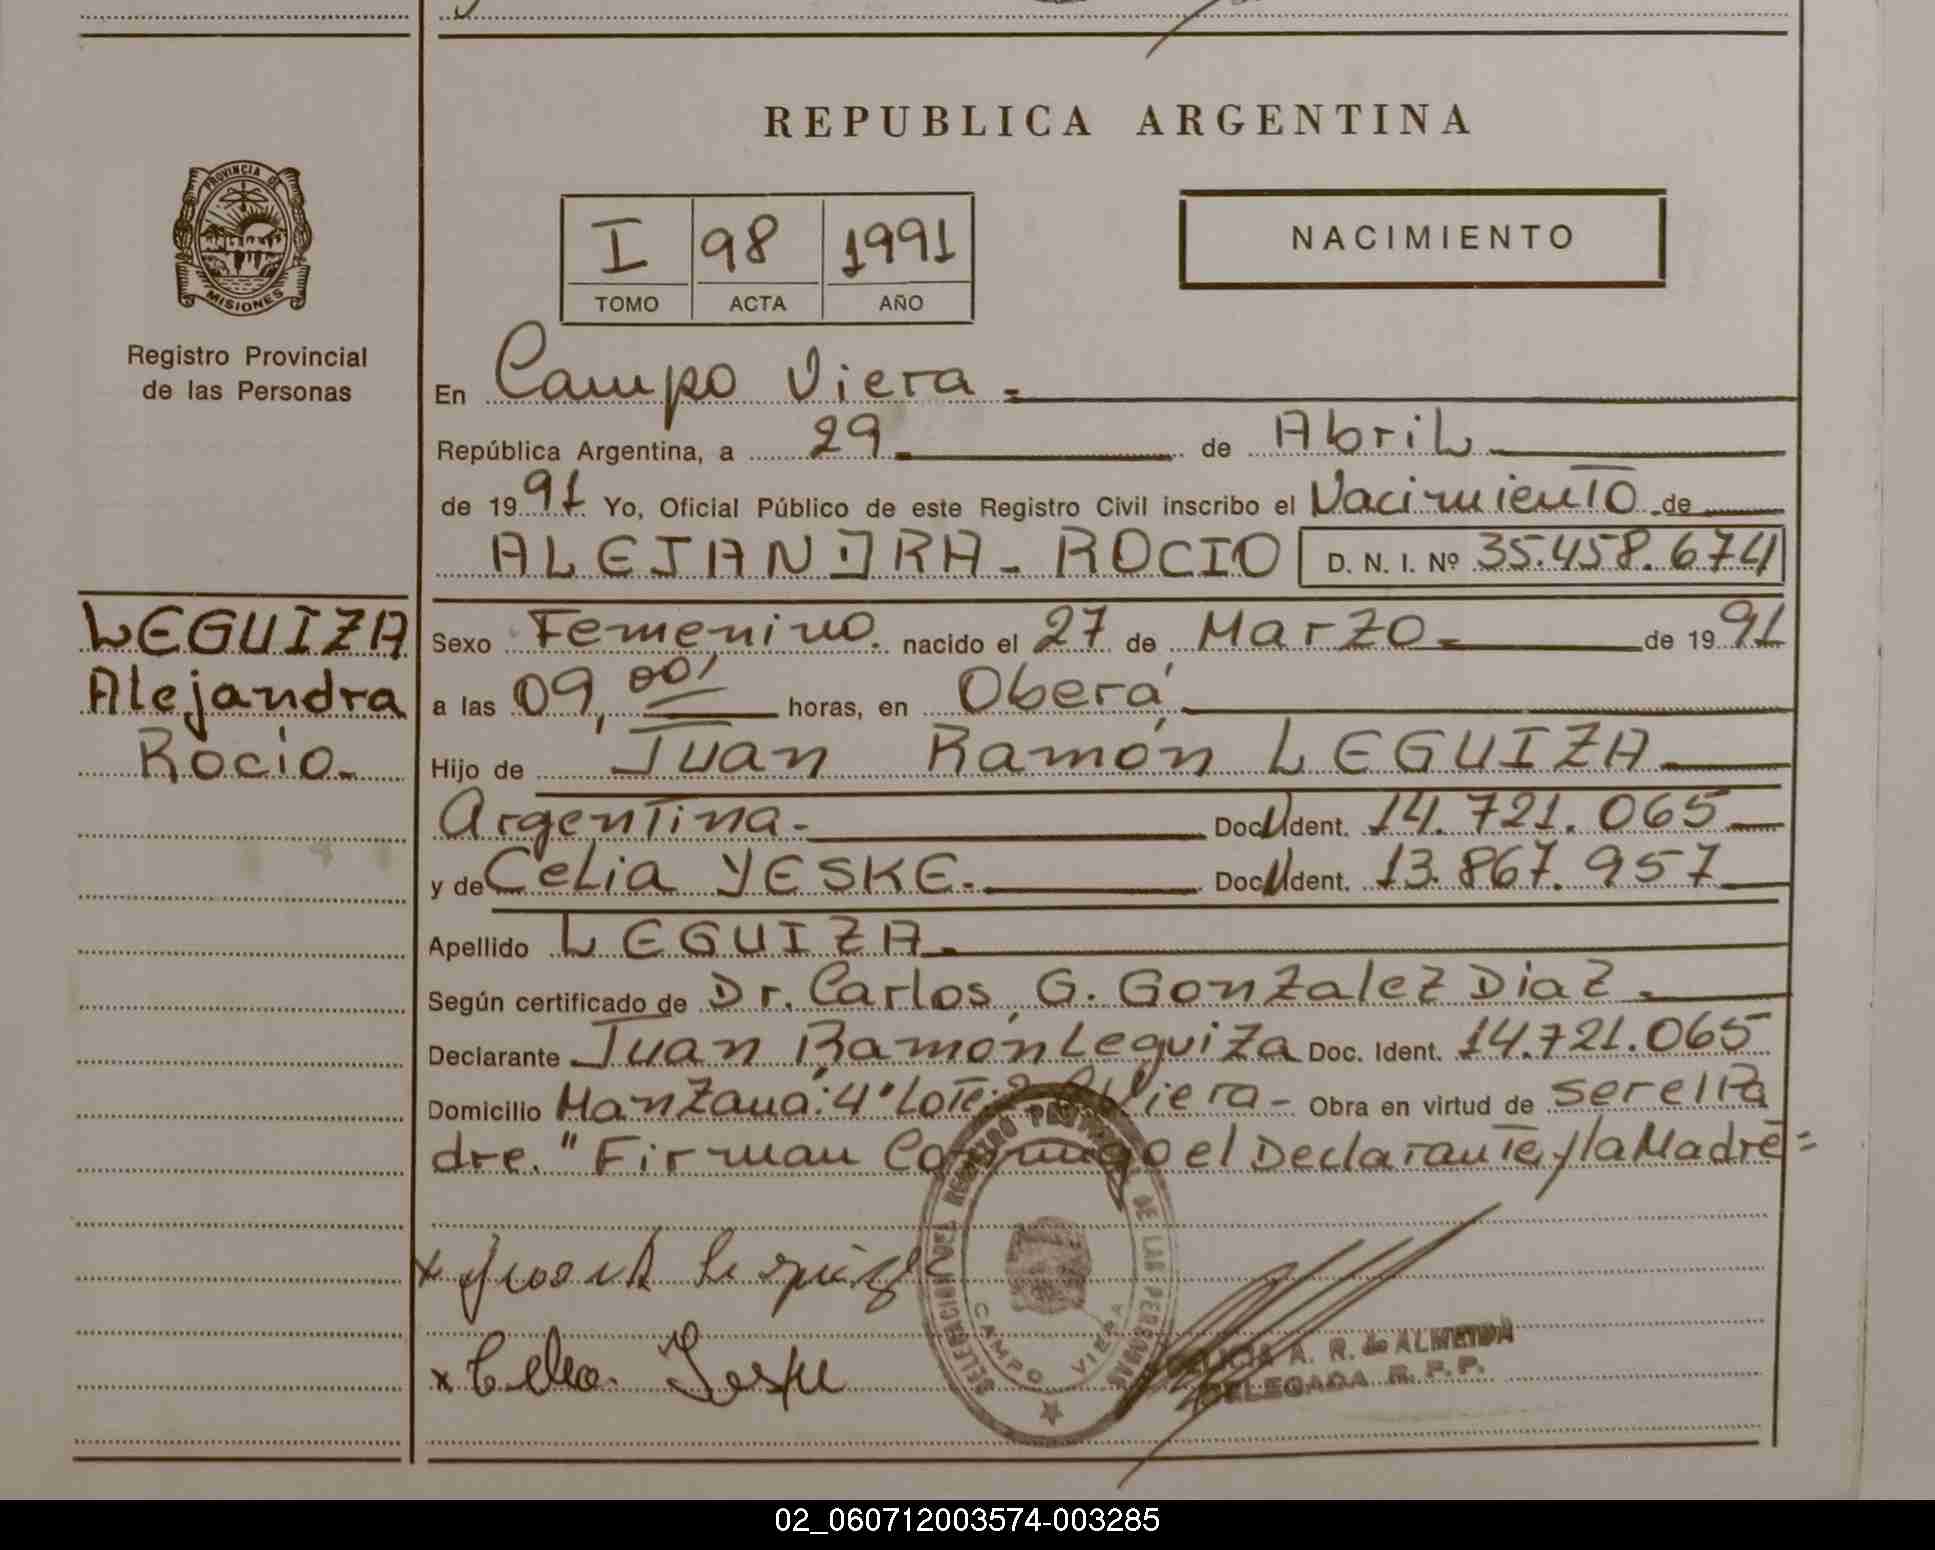 REPUBLICA ARGENTINA
PROVINCIA DE
MISIONES
Registro Provincial
de las Personas
I 98 1991
TOMO ACTA AÑO
NACIMIENTO
En Campo Viera.=
República Argentina, a 29 de Abril
de 1991 Yo, Oficial Público de este Registro Civil inscribo el Nacimiento de
ALEJANDRA - ROCIO D. N. I. Nº 35.458.674
LEGUIZA
Alejandra
Rocio.-
Sexo Femenino. nacido el 27 de Marzo de 1991
a las 09,00' horas, en Oberá
Hijo de Juan Ramón LEGUIZA
Argentina.- Doc. Ident. 14.721.065
y de Celia YESKE.- Doc. Ident. 13.867.957
Apellido LEGUIZA.-
Según certificado de Dr. Carlos G. Gonzalez Diaz.
Declarante Juan Ramón Leguiza Doc. Ident. 14.721.065
Domicilio Manzana: 4 Lote: Viera - Obra en virtud de ser el Pa
dre. "Firman Conmigo el Declarante y la Madre=
REGISTRO PROVINCIAL DE LAS PERSONAS
DELEGACION
CAMPO VIERA
A. R. de ALMEIDA
DELEGADA R. P. P.
02_060712003574-003285